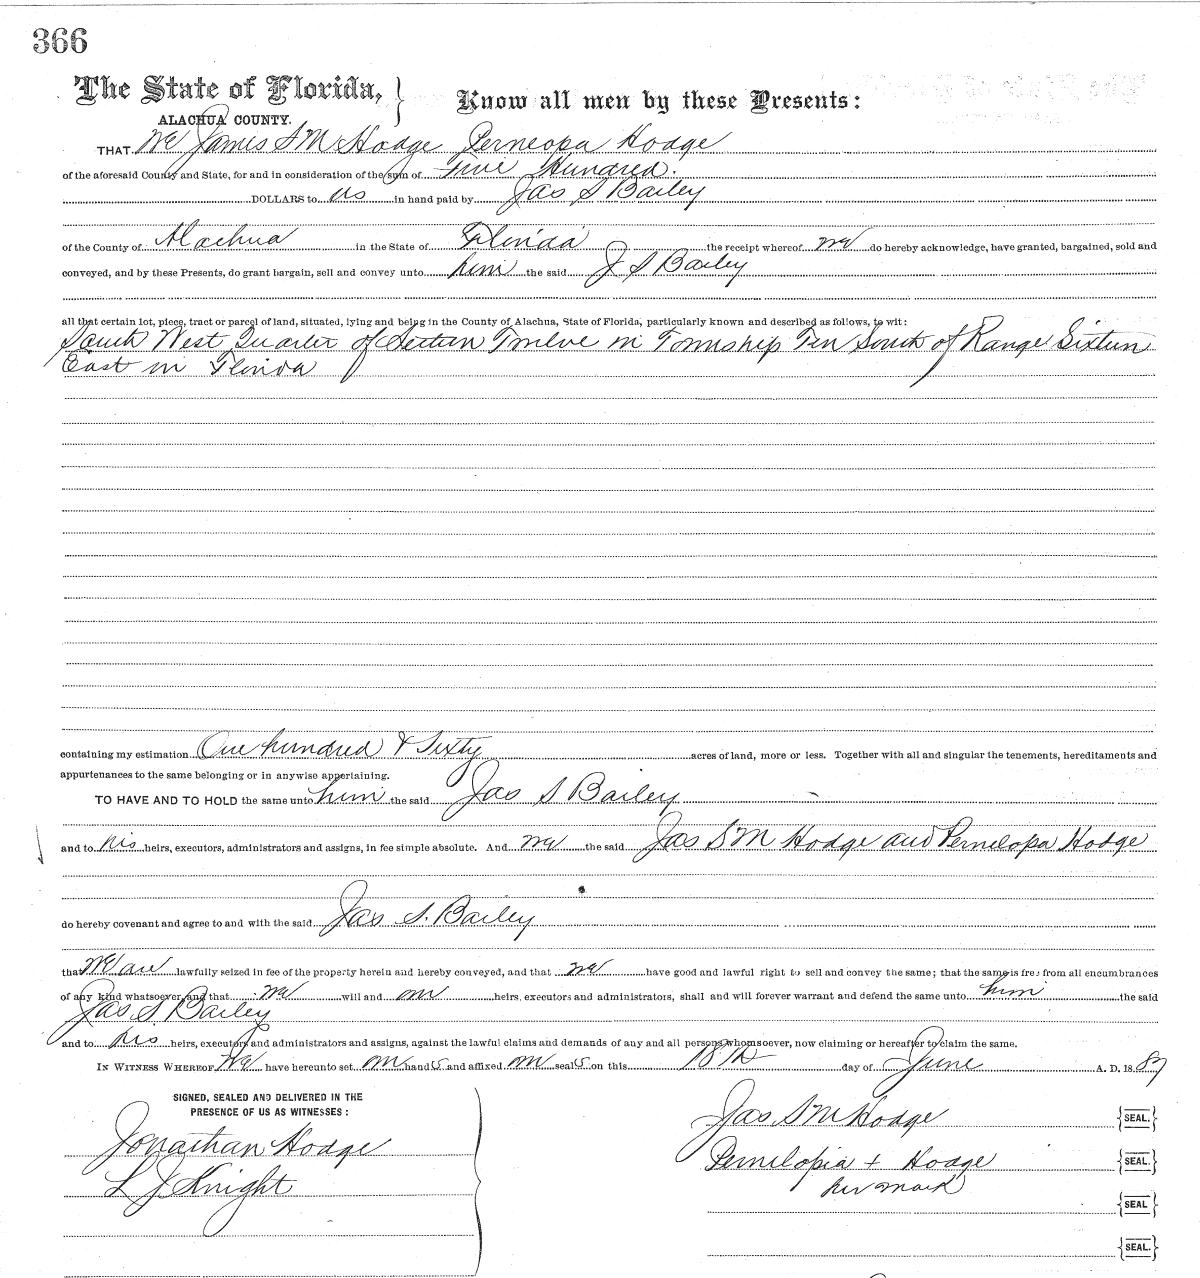 366
The State of Florida,
ALACHUA COUNTY.
Know all men by these Presents:
THAT We James S M Hodge Perneopa Hodge
of the aforesaid County and State, for and in consideration of the sum of Five Hundred.
DOLLARS to us in hand paid by Jas S Bailey
of the County of Alachua in the State of Florida the receipt whereof we do hereby acknowledge, have granted, bargained, sold and
conveyed, and by these Presents, do grant bargain, sell and convey unto him the said J S Bailey
all that certain lot, piece, tract or parcel of land, situated, lying and being in the County of Alachua, State of Florida, particularly known and described as follows, to wit:
South West Quarter of Section Twelve in Township Ten South of Range Sixteen
East in Florida
containing my estimation One hundred & Sixty acres of land, more or less. Together with all and singular the tenements, hereditaments and
appurtenances to the same belonging or in anywise appertaining.
TO HAVE AND TO HOLD the same unto him the said Jas S Bailey
and to his heirs, executors, administrators and assigns, in fee simple absolute. And we the said Jas S M Hodge and Pernelopa Hodge
do hereby covenant and agree to and with the said Jas S. Bailey
that We are lawfully seized in fee of the property herein and hereby conveyed, and that we have good and lawful right to sell and convey the same; that the same is free from all encumbrances
of any kind whatsoever, and that we will and our heirs, executors and administrators, shall and will forever warrant and defend the same unto him the said
Jas S Bailey
and to his heirs, executors and administrators and assigns, against the lawful claims and demands of any and all persons whomsoever, now claiming or hereafter to claim the same.
IN WITNESS WHEREOF We have hereunto set our hands and affixed our seals on this 18th day of June A. D. 18 87
SIGNED, SEALED AND DELIVERED IN THE
PRESENCE OF US AS WITNESSES:
Jonathan Hodge
L J Knight
Jas S M Hodge SEAL.
Pernelopia + Hodge SEAL.
her mark
SEAL
SEAL.